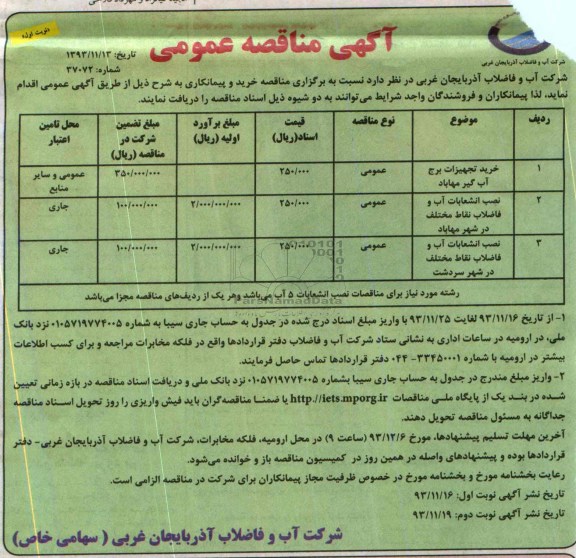 نوبت اول
آگهی مناقصه عمومی
شرکت آب و فاضلاب آذربایجان غربی
تاریخ: ۱۳۹۳/۱۱/۱۳
شماره: ۳۷۰۷۲
شرکت آب و فاضلاب آذربایجان غربی در نظر دارد نسبت به برگزاری مناقصه خرید و پیمانکاری به شرح ذیل از طریق آگهی عمومی اقدام
نماید، لذا پیمانکاران و فروشندگان واجد شرایط می‌توانند به دو شیوه ذیل اسناد مناقصه را دریافت نمایند.
ردیف موضوع نوع مناقصه قیمت اسناد(ریال) مبلغ برآورد اولیه (ریال) مبلغ تضمین شرکت در مناقصه (ریال) محل تامین اعتبار
۱ خرید تجهیزات برج آب گیر مهاباد عمومی ۲۵۰/۰۰۰ ۳۵۰/۰۰۰/۰۰۰ عمومی و سایر منابع
۲ نصب انشعابات آب و فاضلاب نقاط مختلف در شهر مهاباد عمومی ۲۵۰/۰۰۰ ۲/۰۰۰/۰۰۰/۰۰۰ ۱۰۰/۰۰۰/۰۰۰ جاری
۳ نصب انشعابات آب و فاضلاب نقاط مختلف در شهر سردشت عمومی ۲۵۰/۰۰۰ ۲/۰۰۰/۰۰۰/۰۰۰ ۱۰۰/۰۰۰/۰۰۰ جاری
رشته مورد نیاز برای مناقصات نصب انشعابات ۵ آب می‌باشد وهر یک از ردیف‌های مناقصه مجزا می‌باشد
۱- از تاریخ ۹۳/۱۱/۱۶ لغایت ۹۳/۱۱/۲۵ با واریز مبلغ اسناد درج شده در جدول به حساب جاری سیبا به شماره ۰۱۰۵۷۱۹۷۷۴۰۰۵ نزد بانک
ملی، در ارومیه در ساعات اداری به نشانی ستاد شرکت آب و فاضلاب دفتر قراردادها واقع در فلکه مخابرات مراجعه و برای کسب اطلاعات
بیشتر در ارومیه با شماره ۳۳۴۵۰۰۰۱- ۰۴۴ دفتر قراردادها تماس حاصل فرمایند.
۲- واریز مبلغ مندرج در جدول به حساب جاری سیبا بشماره ۰۱۰۵۷۱۹۷۷۴۰۰۵ نزد بانک ملی و دریافت اسناد مناقصه در بازه زمانی تعیین
شده در بند یک از پایگاه ملی مناقصات http://iets.mporg.ir یا ضمنا مناقصه‌گران باید فیش واریزی را روز تحویل اسناد مناقصه
جداگانه به مسئول مناقصه تحویل دهند.
آخرین مهلت تسلیم پیشنهادها، مورخ ۹۳/۱۲/۶ (ساعت ۹) در محل ارومیه، فلکه مخابرات، شرکت آب و فاضلاب آذربایجان غربی- دفتر
قراردادها بوده و پیشنهادهای واصله در همین روز در کمیسیون مناقصه باز و خوانده می‌شود.
رعایت بخشنامه مورخ و بخشنامه مورخ در خصوص ظرفیت مجاز پیمانکاران برای شرکت در مناقصه الزامی است.
تاریخ نشر آگهی نوبت اول: ۹۳/۱۱/۱۶
تاریخ نشر آگهی نوبت دوم: ۹۳/۱۱/۱۹
شرکت آب و فاضلاب آذربایجان غربی ( سهامی خاص)
ParsNamadData